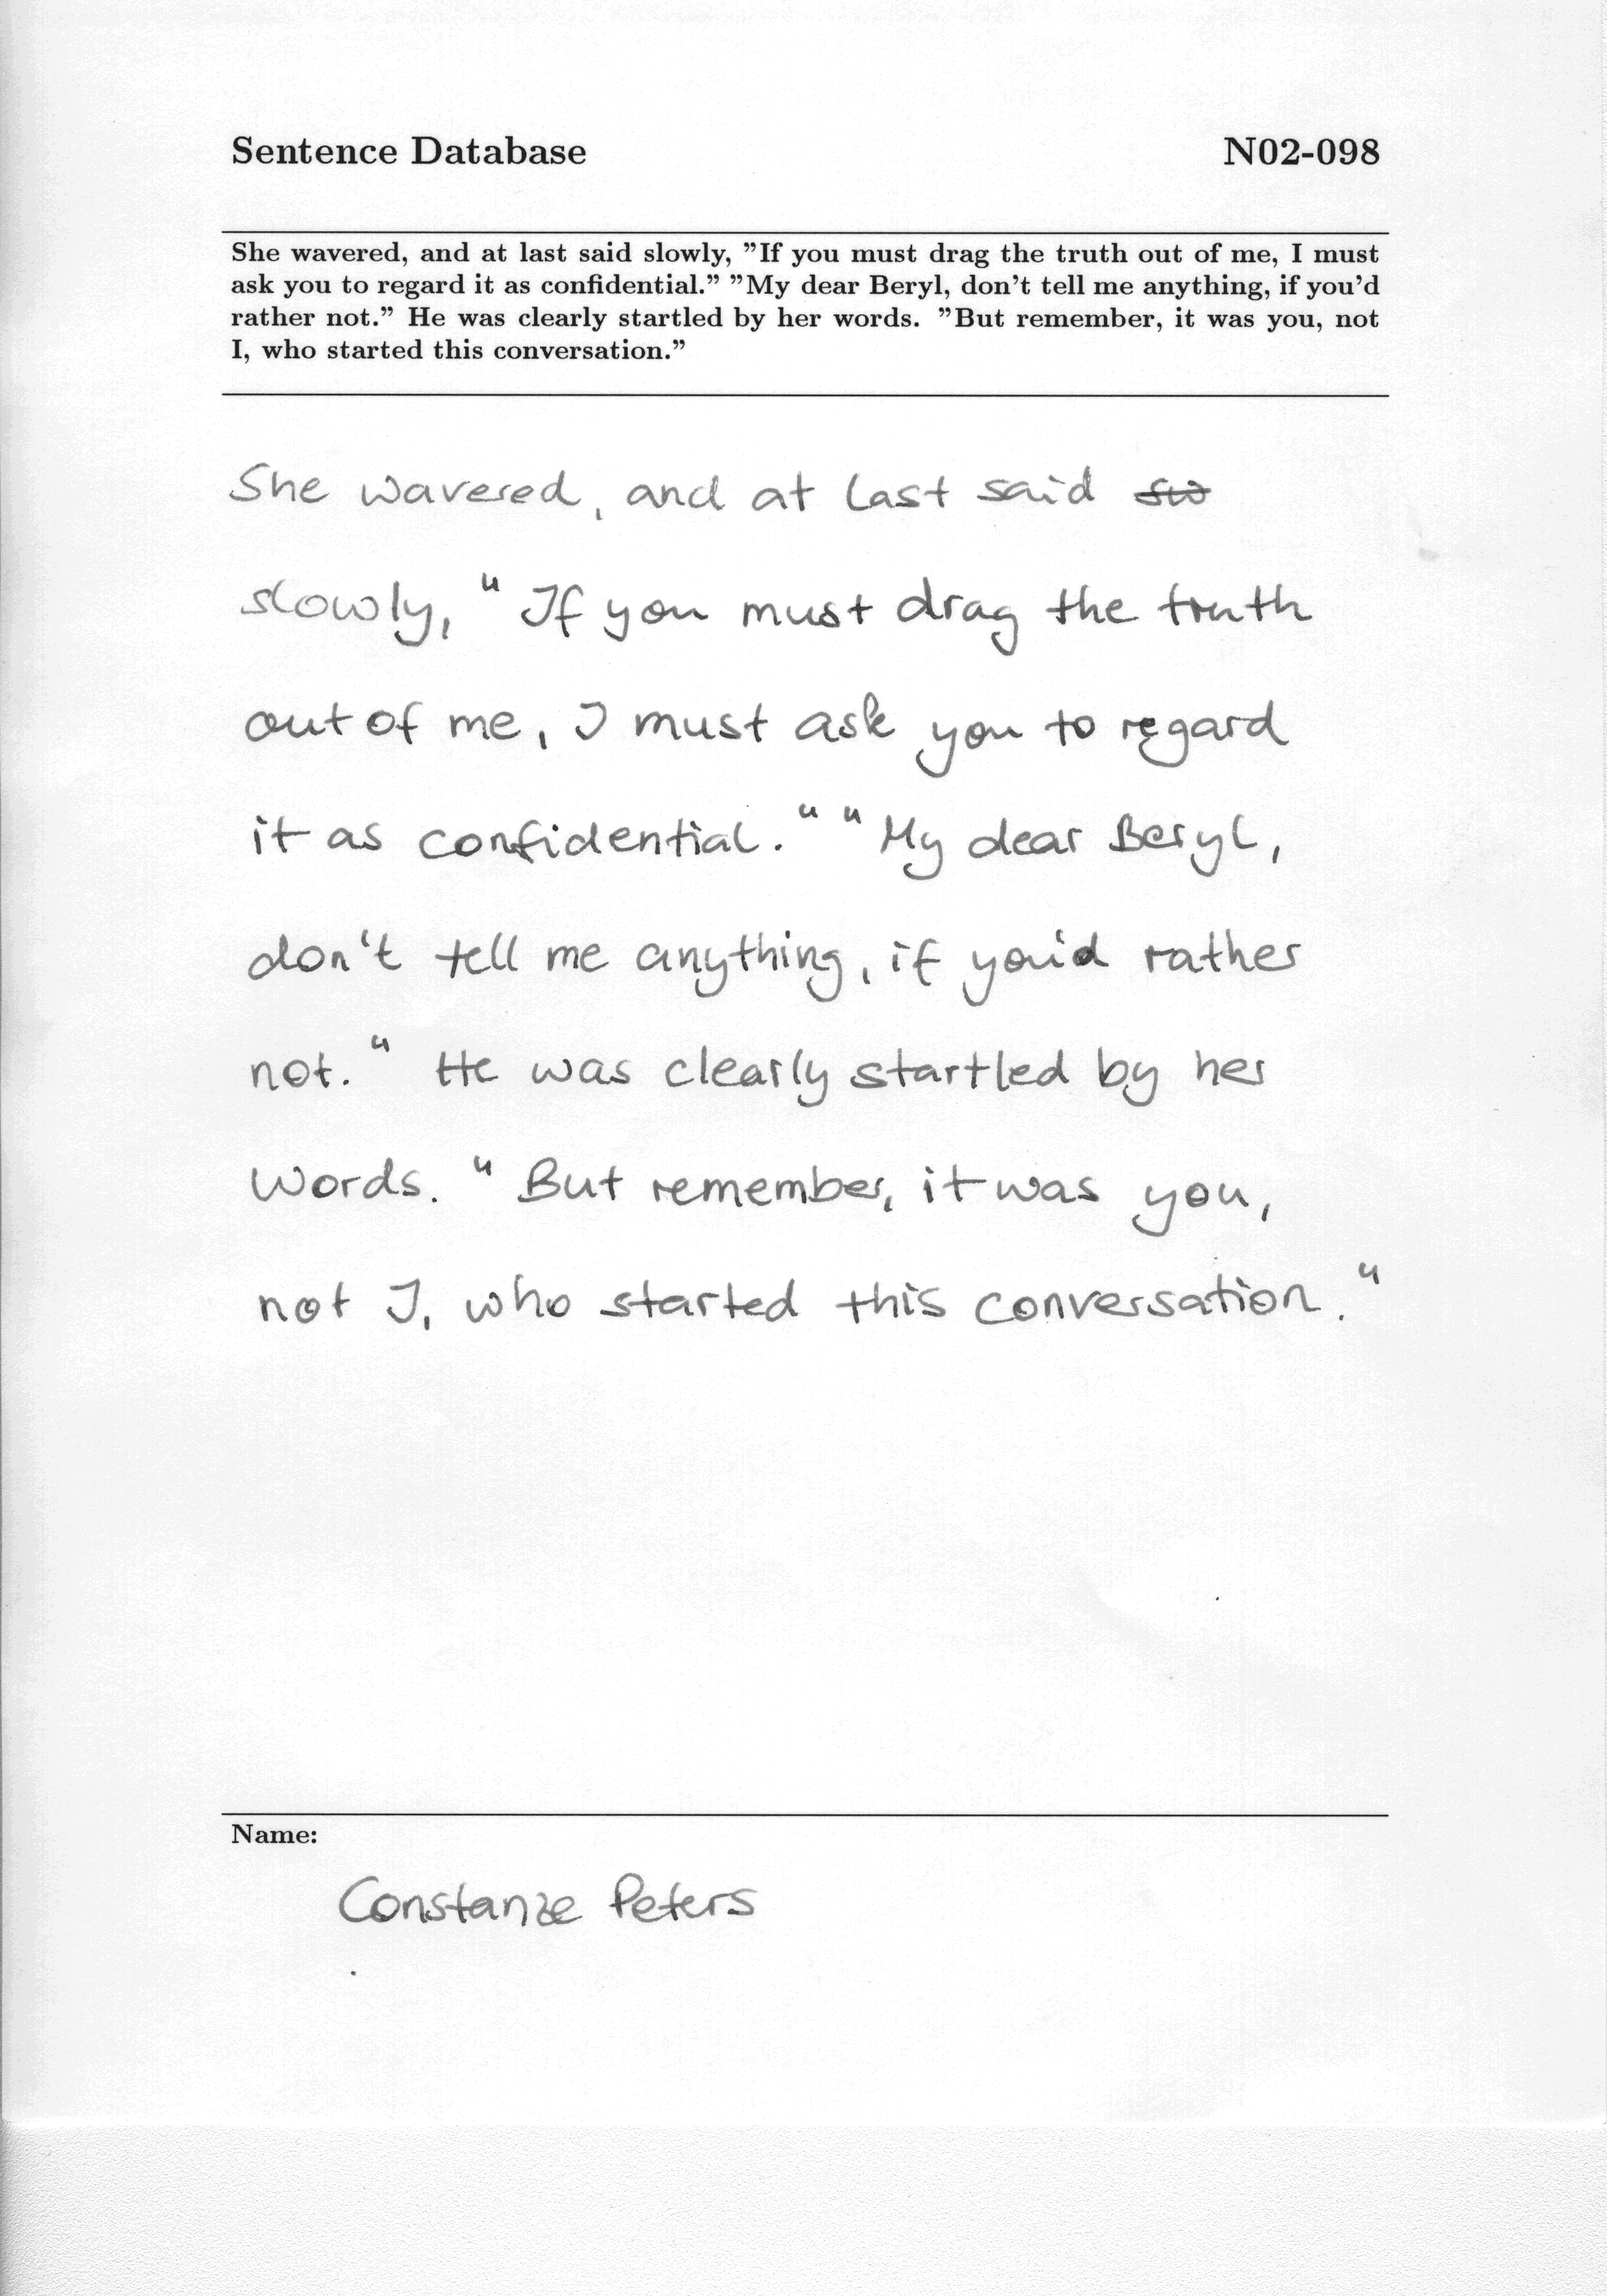 Sentence Database N02-098
She wavered, and at last said slowly, ”If you must drag the truth out of me, I must
ask you to regard it as confidential.” ”My dear Beryl, don’t tell me anything, if you’d
rather not.” He was clearly startled by her words. ”But remember, it was you, not
I, who started this conversation.”
She wavered, and at last said
slowly, “If you must drag the truth
out of me, I must ask you to regard
it as confidential.“ “My dear Beryl,
don't tell me anything, if you'd rather
not.“ He was clearly startled by her
words. “But remember, it was you,
not I, who started this conversation.“
Name:
Constanze Peters